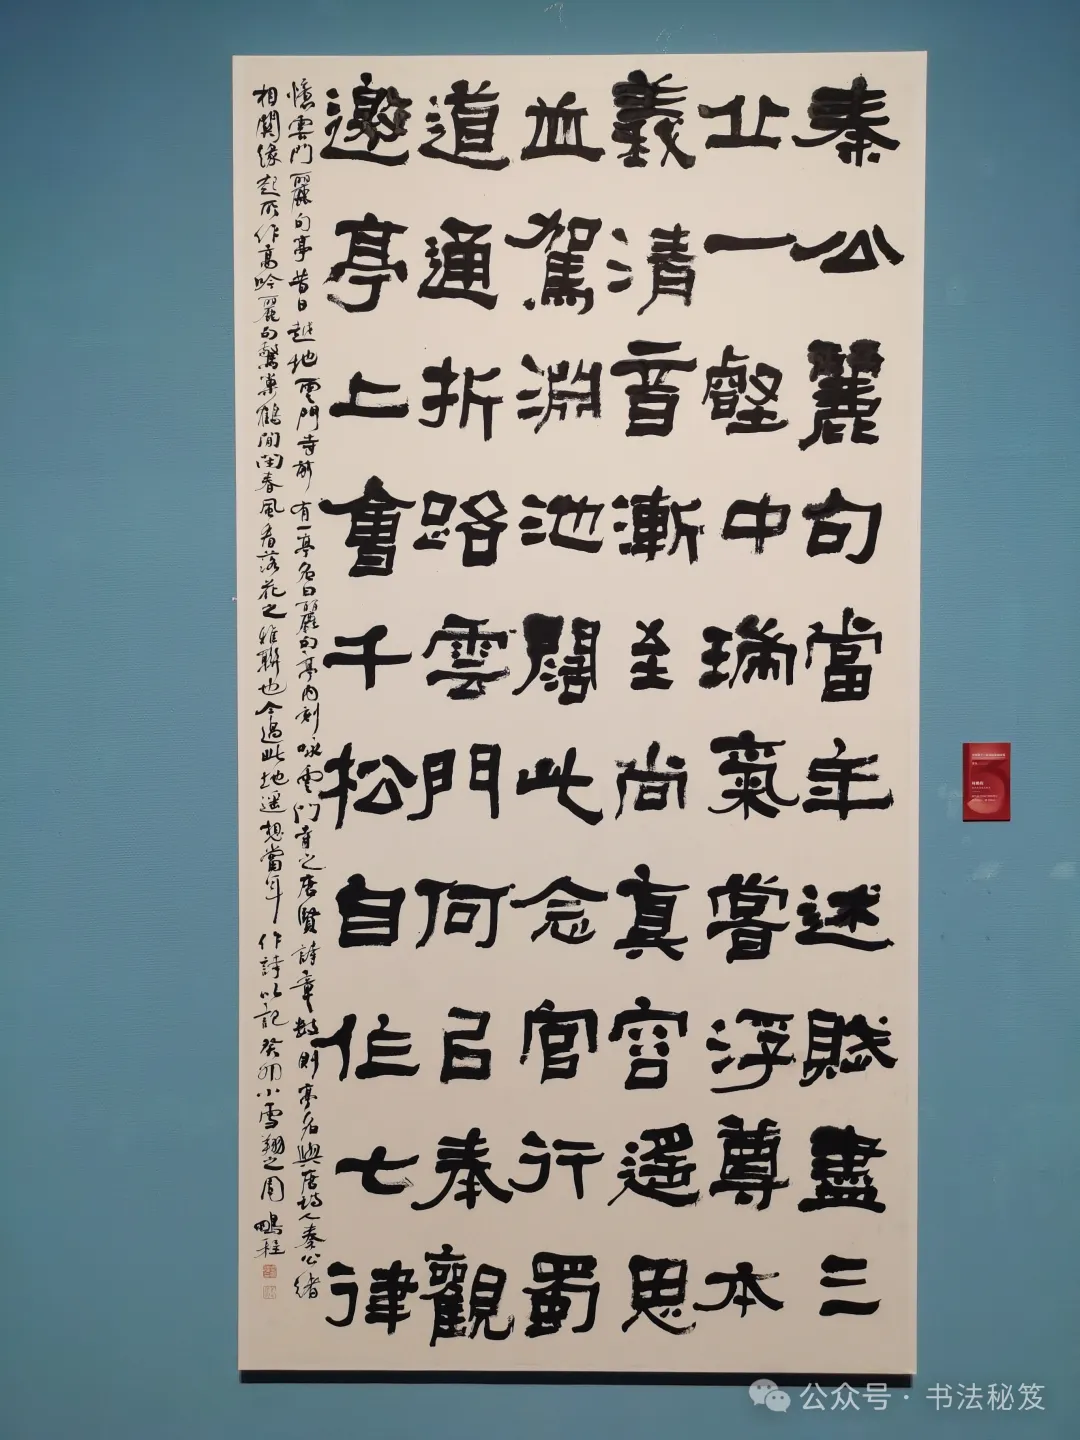 秦公麗句當年述賦盡三
止一壑中瑞氣嘗浮尊本
義清音漸至尚真容遥思
並駕淵池闊此念官行蜀
道通折路雲門何㠯奉觀
邀亭上會千松自作七律
憶雲門麗句亭昔日越地雲門寺前有一亭名曰麗句亭内刻咏雲門寺之唐賢詩章數則亭名與唐詩人秦公緒
相關緣起所作高吟麗句驚巢鶴閒閉春風看落花之雅聯也今過此地遥想當年作詩以記癸卯小雪翔之周鵬程
公众号·书法秘笈